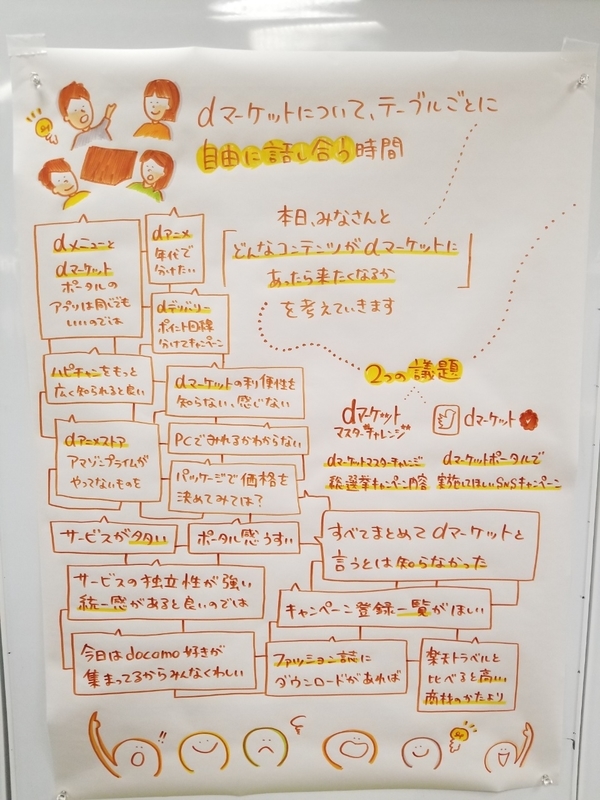 dマーケットについて、テーブルごとに
自由に話し合う時間
本日、みなさんと
どんなコンテンツがdマーケットに
あったら来たくなるか
を考えていきます
2つの議題
dマーケット
マスターチャレンジ
dマーケットマスターチャレンジ
総選挙キャンペーン内容
dマーケット
dマーケットポータルで
実施してほしいSNSキャンペーン
dメニューと
dマーケット
ポータルの
アプリは同じでも
いいのでは
dアニメ
年代で
分けたい
dデリバリー
ポイント目線
分けてキャンペーン
ハピチャンをもっと
広く知られると良い
dマーケットの利便性を
知らない、感じない
dアニメストア
アマゾンプライムが
やってないものを
PCでみれるかわからない
パッケージで価格を
決めてみては?
サービスが多い
ポータル感うすい
すべてまとめてdマーケットと
言うとは知らなかった
サービスの独立性が強い
統一感があると良いのでは
キャンペーン登録一覧がほしい
今日はdocomo好きが
集まってるからみんなくわしい
ファッション誌に
ダウンロードがあれば
楽天トラベルと
比べると高い
商材のかたより